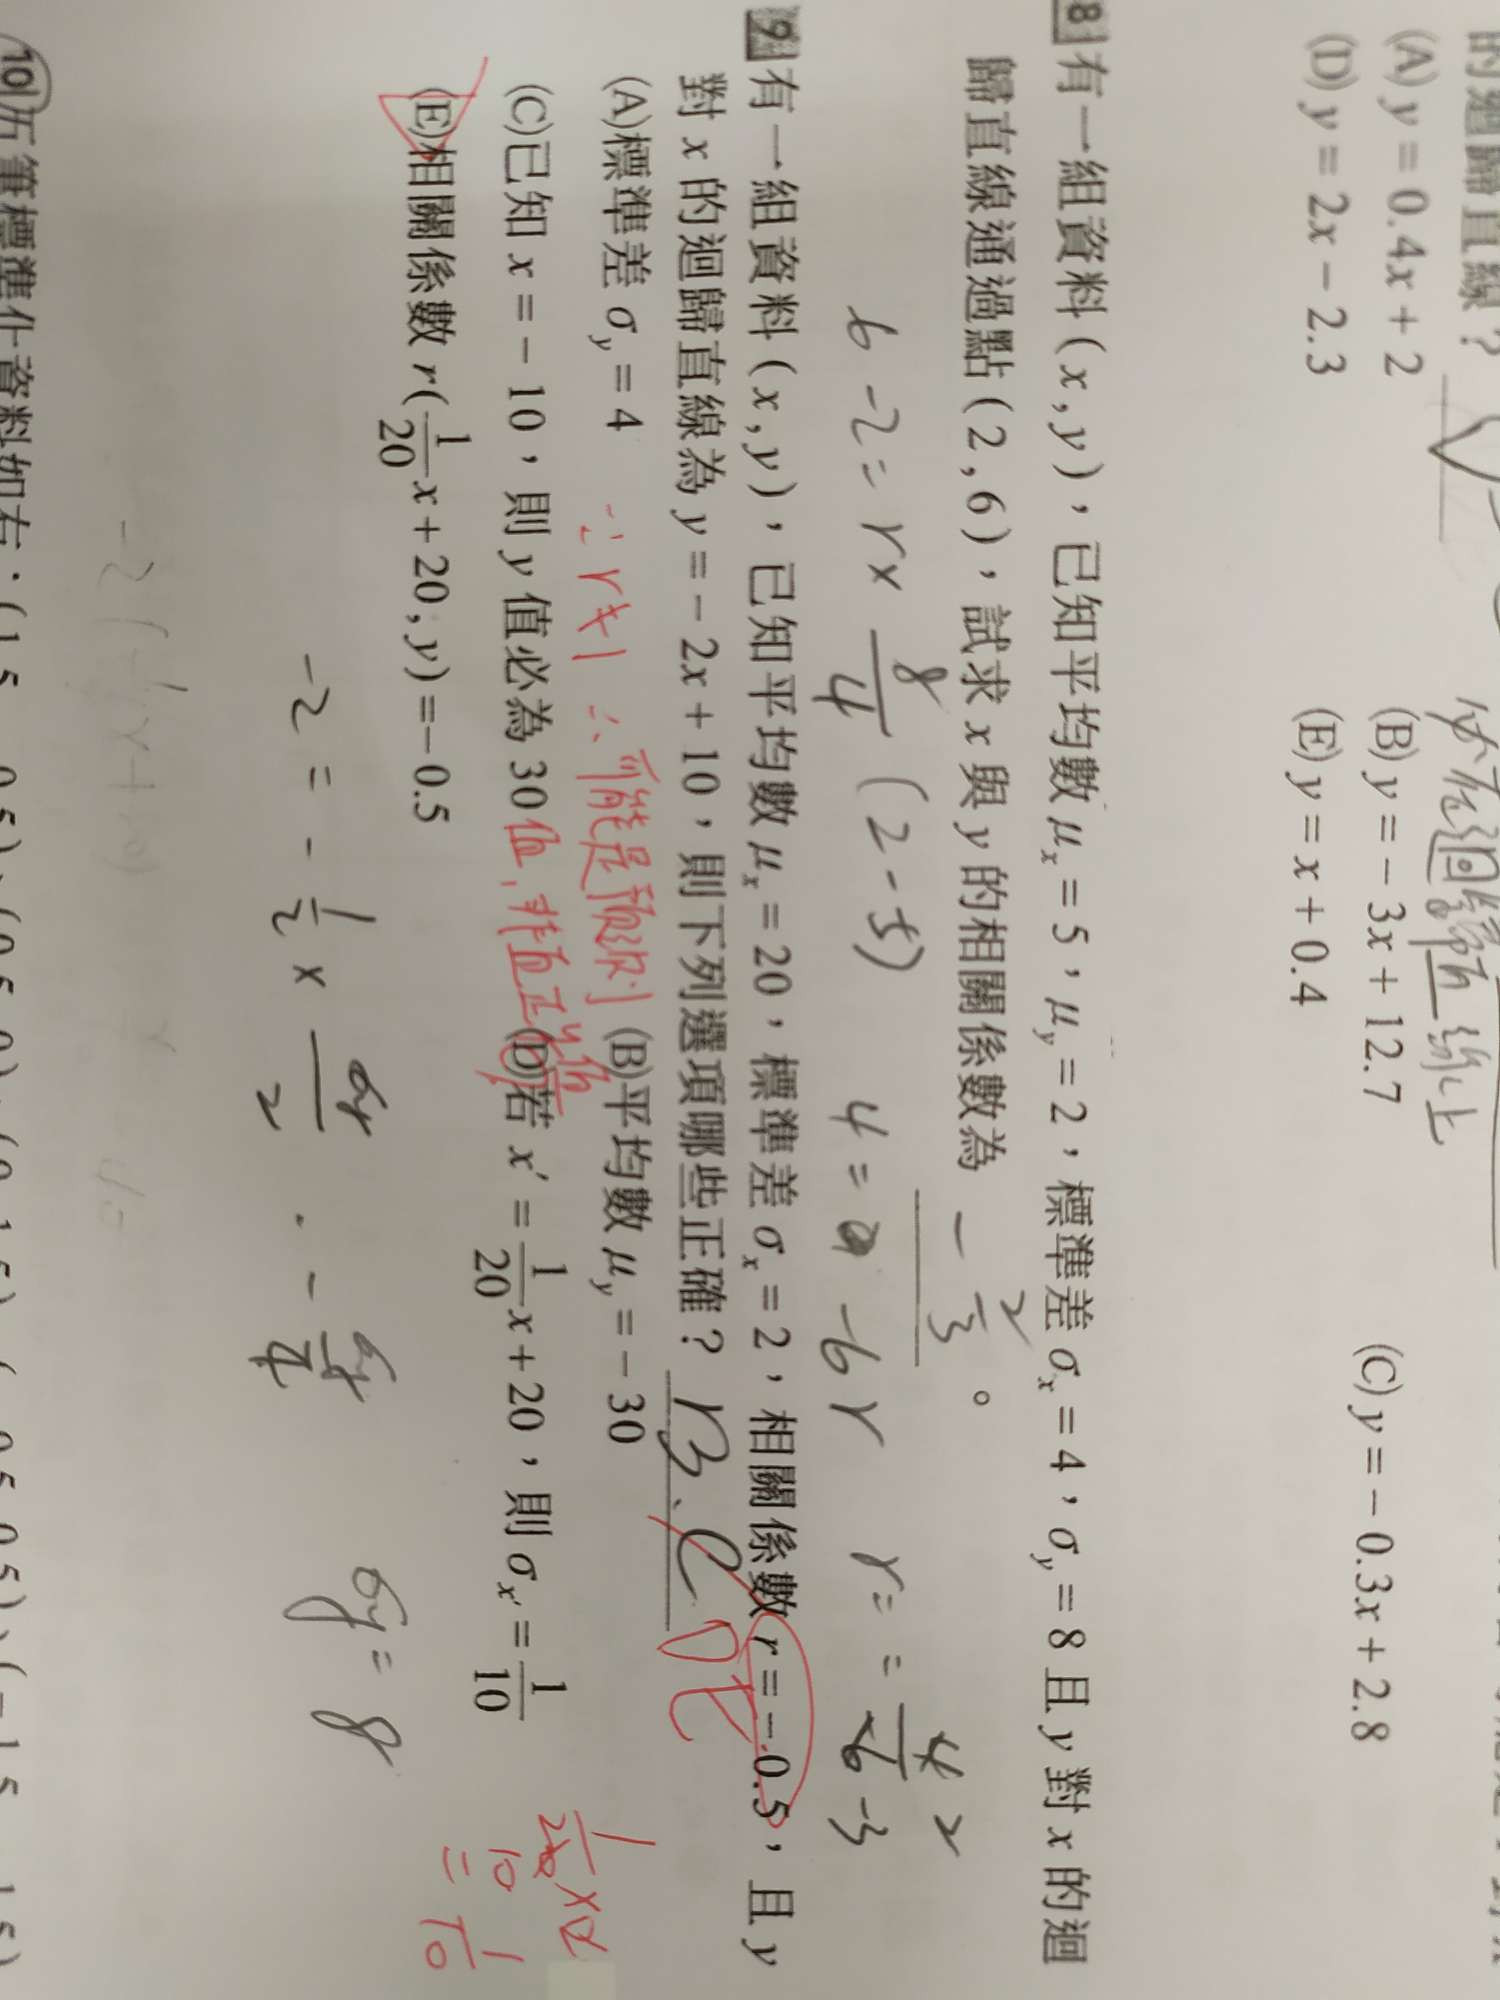 的迴歸直線？
必在迴歸直線上
(A) y = 0.4x + 2 (B) y = − 3x + 12.7 (C) y = − 0.3x + 2.8
(D) y = 2x − 2.3 (E) y = x + 0.4
8 有一組資料 ( x , y )，已知平均數 μx = 5，μy = 2，標準差 σx = 4，σy = 8 且 y 對 x 的迴
歸直線通過點 ( 2 , 6 )，試求 x 與 y 的相關係數為 − 2/3 。
6 − 2 = r × 8/4 ( 2 − 5 ) 4 = − 6 r r =
9 有一組資料 ( x , y )，已知平均數 μx = 20，標準差 σx = 2，相關係數 r = − 0.5，且 y
對 x 的迴歸直線為 y = − 2x + 10，則下列選項哪些正確？ B、C DE
(A)標準差 σy = 4 ∵ r ≠ 1 ∴ 可能是預測 (B)平均數 μy = − 30
(C)已知 x = − 10，則 y 值必為 30 值，非真正的值 (D)若 x′ = 1/20 x + 20，則 σx′ = 1/10
(E)相關係數 r( 1/20 x + 20 , y ) = − 0.5
1/20 × 2 = 1/10
− 2 = − 1/2 × σy/2 · − σy/4 σy = 8
10 五筆標準化資料如右：